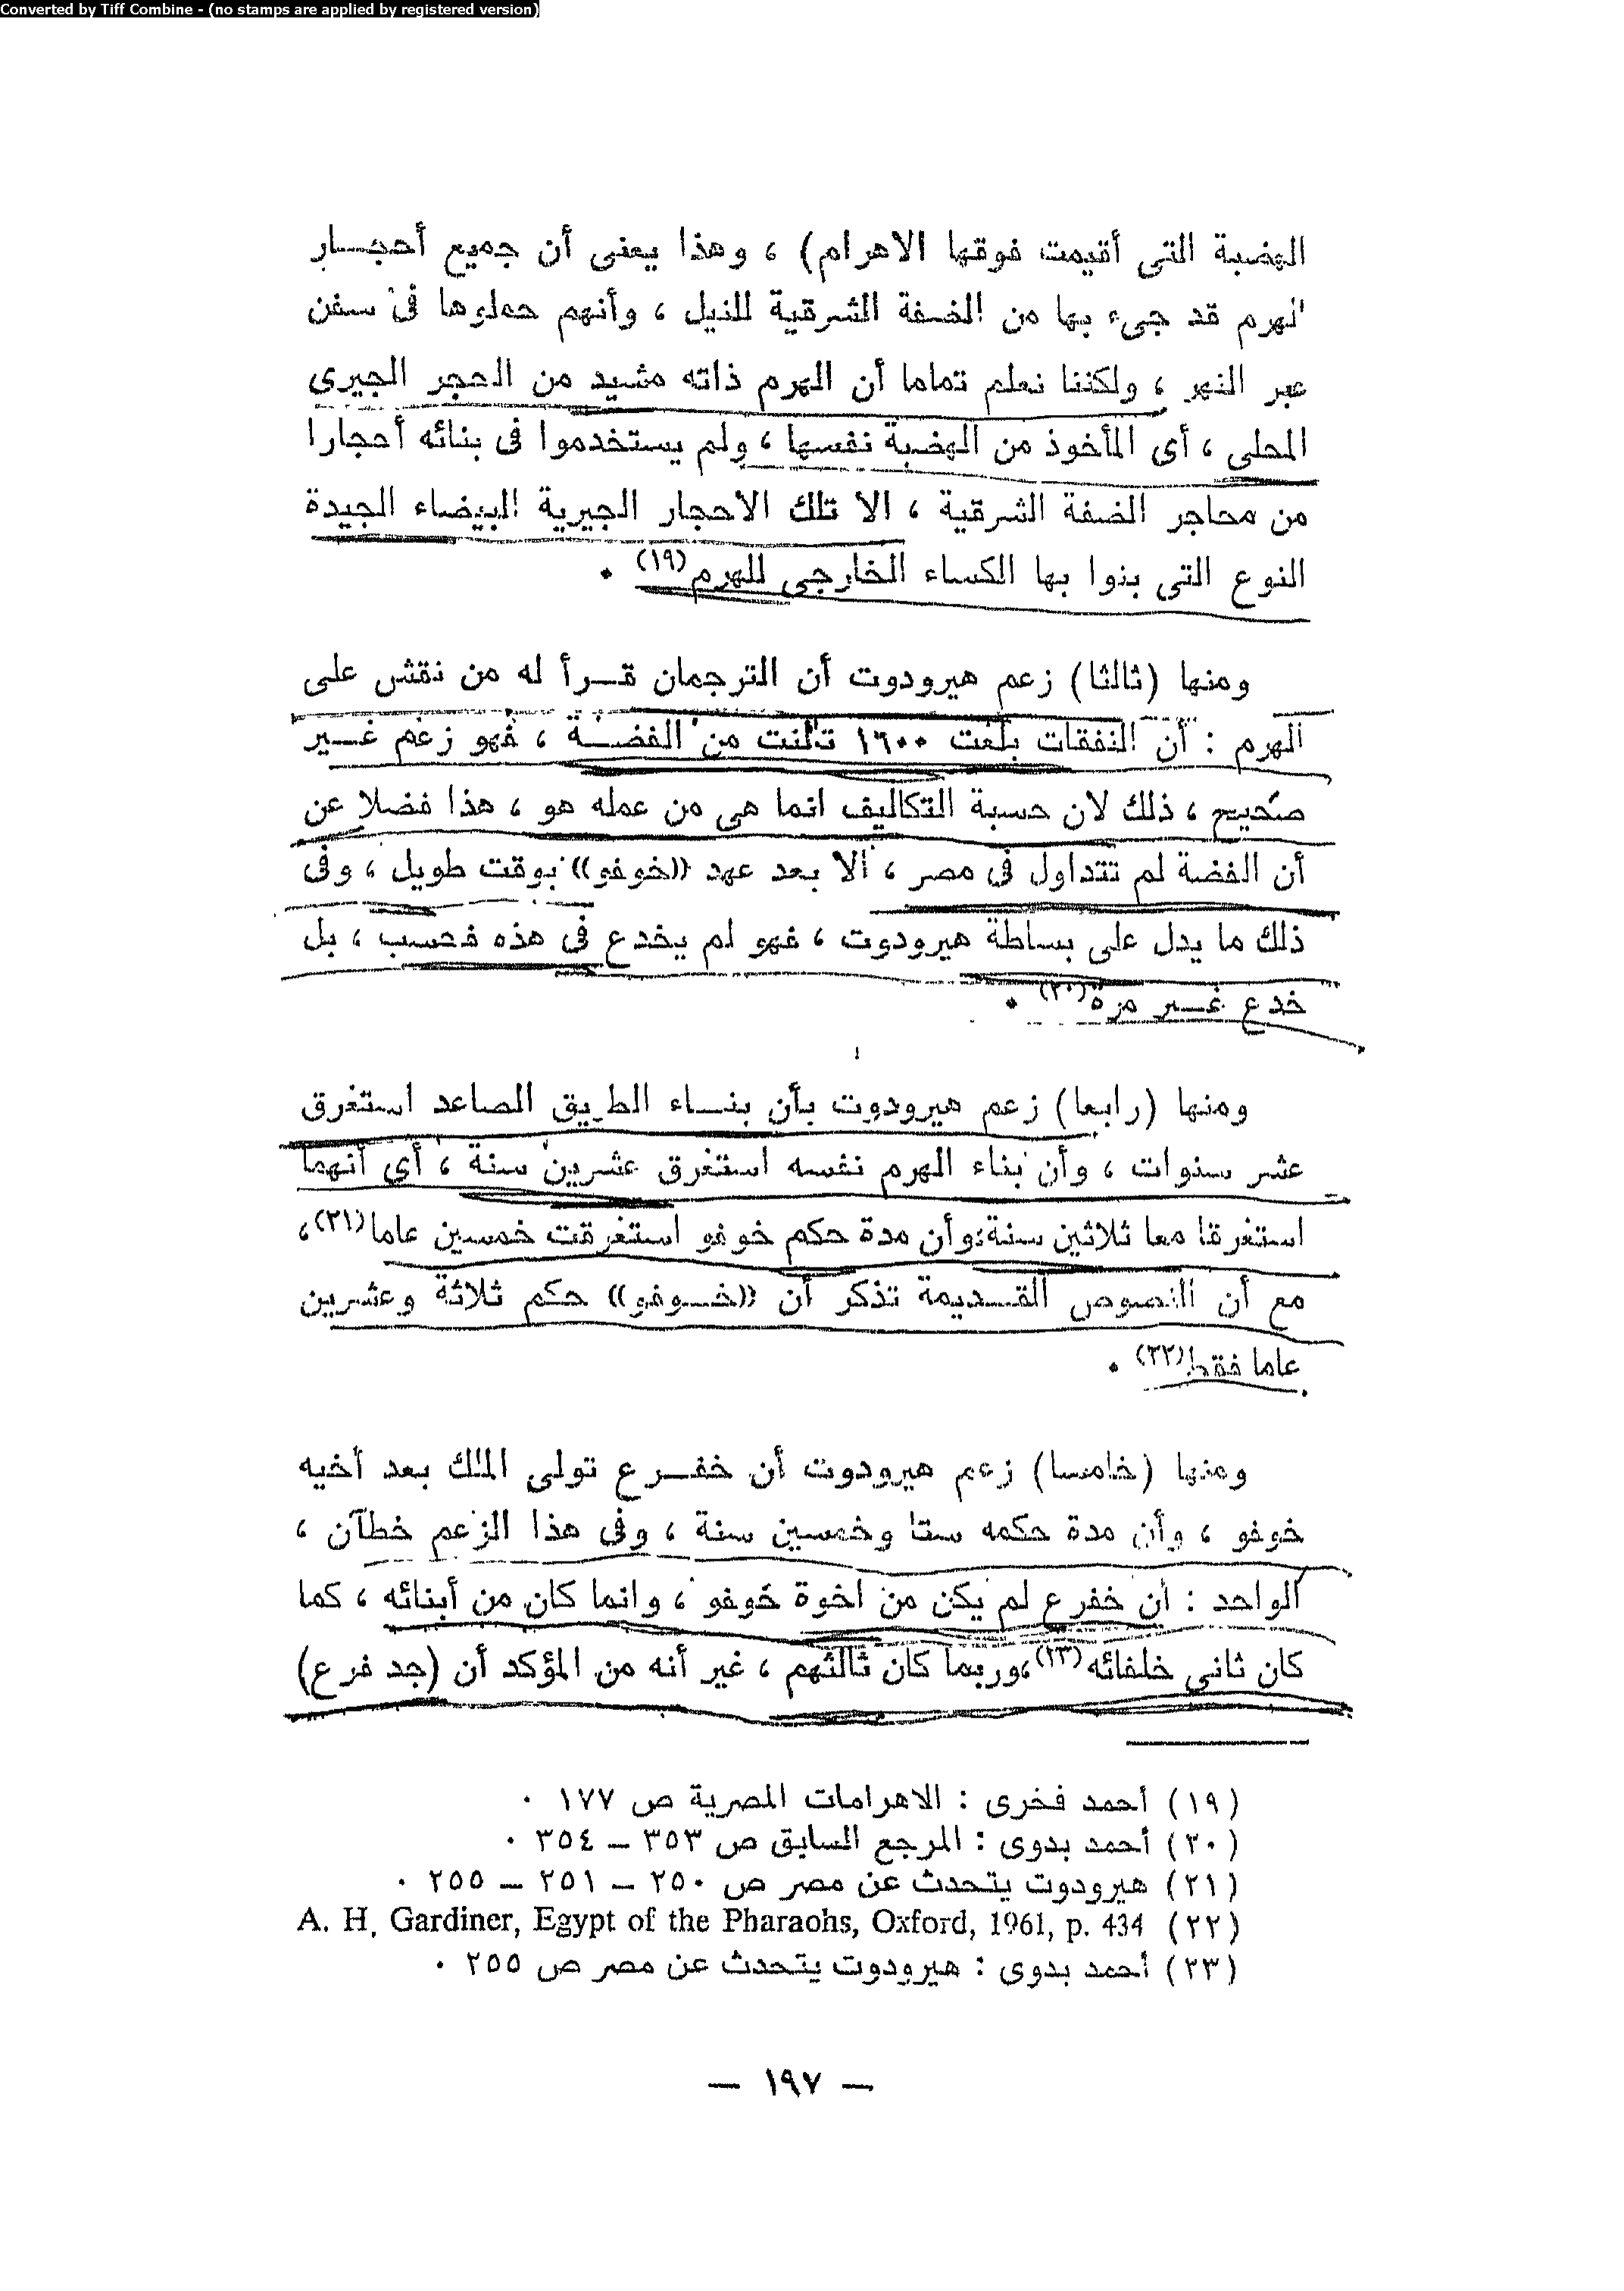 Converted by Tiff Combine - (no stamps are applied by registered version)
الهضبة التى أقيمت فوقها الاهرام) ، وهذا يعنى أن جميع أحجــار
الهرم قد جىء بها من الضفة الشرقية للنيل ، وأنهم حملوها فى سفن
عبر النهر ، ولكننا نعلم تماما أن الهرم ذاته مشيد من الحجر الجيرى
المحلى ، أى المأخوذ من الهضبة نفسها ، ولم يستخدموا فى بنائه أحجارا
من محاجر الضفة الشرقية ، الا تلك الاحجار الجيرية البيضاء الجيدة
النوع التى بنوا بها الكساء الخارجى للهرم(١٩) .
ومنها (ثالثا) زعم هيرودوت أن الترجمان قــرأ له من نقش على
الهرم : أن النفقات بلغت ١٦٠٠ تالنت من الفضــة ، فهو زعم غــير
صحيح ، ذلك لان حسبة التكاليف انما هى من عمله هو ، هذا فضلا عن
أن الفضة لم تتداول فى مصر ، الا بعد عهد ((خوفو)) بوقت طويل ، وفى
ذلك ما يدل على بساطة هيرودوت ، فهو لم يخدع فى هذه فحسب ، بل
خدع غــير مرة(٢٠) .
ومنها (رابعا) زعم هيرودوت بأن بنــاء الطريق الصاعد استغرق
عشر سنوات ، وأن بناء الهرم نفسه استغرق عشرين سنة ، أى أنهما
استغرقا معا ثلاثين سنة، وأن مدة حكم خوفو استغرقت خمسين عاما(٢١)،
مع أن النصوص القــديمة تذكر أن ((خــوفو)) حكم ثلاثة وعشرين
عاما فقط(٢٢) .
ومنها (خامسا) زعم هيرودوت أن خفــرع تولى الملك بعد أخيه
خوفو ، وأن مدة حكمه ستا وخمسين سنة ، وفى هذا الزعم خطآن ،
الواحد : أن خفرع لم يكن من اخوة خوفو ، وانما كان من أبنائه ، كما
كان ثانى خلفائه(٢٣)،وربما كان ثالثهم ، غير أنه من المؤكد أن (جد فرع)
(١٩) أحمد فخرى : الاهرامات المصرية ص ١٧٧ .
(٢٠) أحمد بدوى : المرجع السابق ص ٣٥٣ – ٣٥٤ .
(٢١) هيرودوت يتحدث عن مصر ص ٢٥٠ – ٢٥١ – ٢٥٥ .
(٢٢) A. H. Gardiner, Egypt of the Pharaohs, Oxford, 1961, p. 434
(٢٣) أحمد بدوى : هيرودوت يتحدث عن مصر ص ٢٥٥ .
— ١٩٧ —